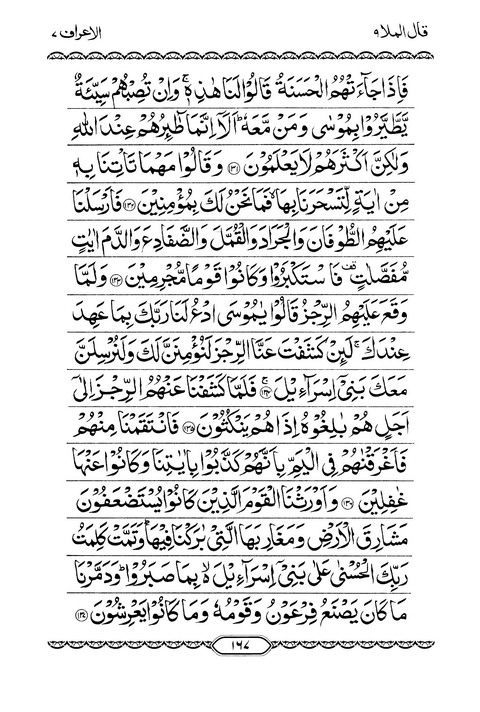 قال الملا ٩
الاعراف ٧
فَاِذَا جَآءَتْهُمُ الْحَسَنَةُ قَالُوْا لَنَا هٰذِهٖ ۚ وَاِنْ تُصِبْهُمْ سَيِّئَةٌ
يَّطَّيَّرُوْا بِمُوْسٰى وَمَنْ مَّعَهٗ ؕ اَلَاۤ اِنَّمَا طٰٓئِرُهُمْ عِنْدَ اللّٰهِ
وَلٰكِنَّ اَكْثَرَهُمْ لَا يَعْلَمُوْنَ ﴿۱۳۱﴾ وَقَالُوْا مَهْمَا تَاْتِنَا بِهٖ
مِنْ اٰيَةٍ لِّتَسْحَرَنَا بِهَا ۙ فَمَا نَحْنُ لَكَ بِمُؤْمِنِيْنَ ﴿۱۳۲﴾ فَاَرْسَلْنَا
عَلَيْهِمُ الطُّوْفَانَ وَالْجَرَادَ وَالْقُمَّلَ وَالضَّفَادِعَ وَالدَّمَ اٰيٰتٍ
مُّفَصَّلٰتٍ ۟ فَاسْتَكْبَرُوْا وَكَانُوْا قَوْمًا مُّجْرِمِيْنَ ﴿۱۳۳﴾ وَلَمَّا
وَقَعَ عَلَيْهِمُ الرِّجْزُ قَالُوْا يٰمُوْسَى ادْعُ لَنَا رَبَّكَ بِمَا عَهِدَ
عِنْدَكَ ۚ لَئِنْ كَشَفْتَ عَنَّا الرِّجْزَ لَنُؤْمِنَنَّ لَكَ وَلَنُرْسِلَنَّ
مَعَكَ بَنِيْۤ اِسْرَآءِيْلَ ﴿۱۳۴﴾ ۚ فَلَمَّا كَشَفْنَا عَنْهُمُ الرِّجْزَ اِلٰۤى
اَجَلٍ هُمْ بٰلِغُوْهُ اِذَا هُمْ يَنْكُثُوْنَ ﴿۱۳۵﴾ فَانْتَقَمْنَا مِنْهُمْ
فَاَغْرَقْنٰهُمْ فِى الْيَمِّ بِاَنَّهُمْ كَذَّبُوْا بِاٰيٰتِنَا وَكَانُوْا عَنْهَا
غٰفِلِيْنَ ﴿۱۳۶﴾ وَاَوْرَثْنَا الْقَوْمَ الَّذِيْنَ كَانُوْا يُسْتَضْعَفُوْنَ
مَشَارِقَ الْاَرْضِ وَمَغَارِبَهَا الَّتِيْ بٰرَكْنَا فِيْهَا ؕ وَتَمَّتْ كَلِمَتُ
رَبِّكَ الْحُسْنٰى عَلٰى بَنِيْۤ اِسْرَآءِيْلَ ۙ بِمَا صَبَرُوْا ؕ وَدَمَّرْنَا
مَا كَانَ يَصْنَعُ فِرْعَوْنُ وَقَوْمُهٗ وَمَا كَانُوْا يَعْرِشُوْنَ ﴿۱۳۷﴾
١٦٧